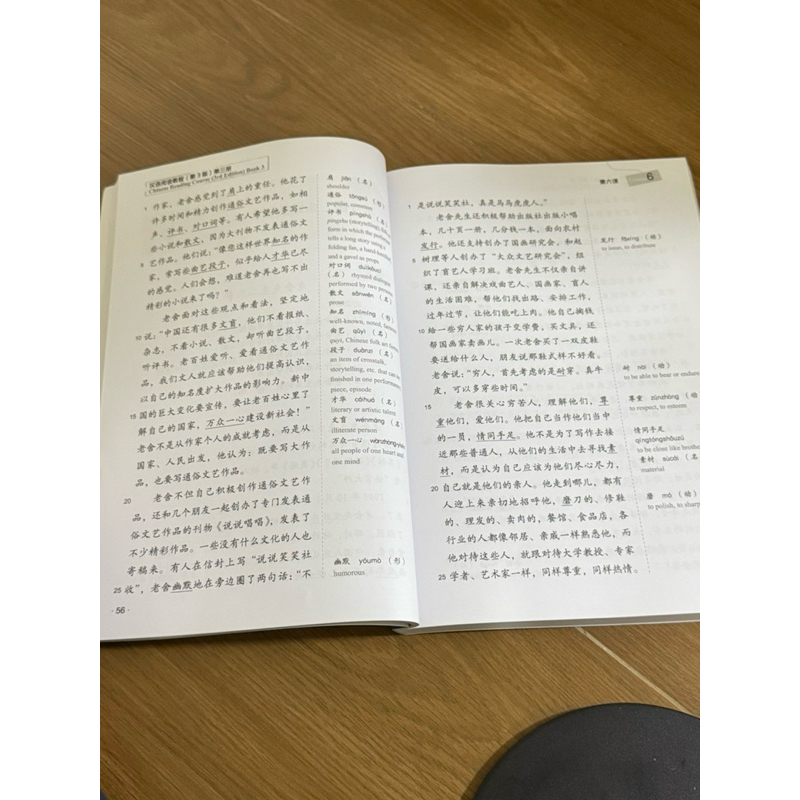 汉语阅读教程（第3版）第三册
Chinese Reading Course (3rd Edition) Book 3
1 作家，老舍感觉到了肩上的重任。他花了
许多时间和精力创作通俗文艺作品，如相
声、评书、对口词等。有人希望他多写一
些小说和散文，因为大刊物不发表通俗文
5 艺作品。他们说：“像您这样世界知名的作
家，常写些曲艺段子，似乎给人才华已尽
的感觉。人们会想，难道老舍再也写不出
精彩的小说来了吗？”
老舍面对这些观点和看法，坚定地
10 说：“中国还有很多文盲，他们不看报纸、
杂志，不看小说、散文，却听曲艺段子，
听评书。老百姓爱听、爱看通俗文艺作
品，我们文人就应该帮助他们提高认识，
以自己的知名度扩大作品的影响力。新中
15 国的巨大变化要宣传，要让老百姓心里了
解自己的国家，万众一心建设新社会！”
老舍不是从作家个人的成就考虑，而是从
国家、人民出发，他认为：既要写大作
品，也要写通俗文艺作品。
20 老舍不但自己积极创作通俗文艺作
品，还和几个朋友一起创办了专门发表通
俗文艺作品的刊物《说说唱唱》，发表了
不少精彩作品。一些没有什么文化的人也
寄稿来。有人在信封上写“说说笑笑社
25 收”，老舍幽默地在旁边圈了两句话：“不
· 56 ·
肩 jiān （名）
shoulder
通俗 tōngsú （形）
popular, common
评书 píngshū （名）
pingshu (storytelling),
form in which the
tells a long story using
folding fan, a hand
and a gavel as props
对口词 duìkǒucí
（名） rhymed dialogue
performed by two persons
散文 sǎnwén （名）
prose
知名 zhīmíng （形）
well-known, noted, famous
曲艺 qǔyì （名）
quyi, Chinese folk art forms
段子 duànzi （名）
an item of crosstalk,
storytelling, etc. that can be
finished in one performance,
piece, episode
才华 cáihuá （名）
literary or artistic talent
文盲 wénmáng （名）
illiterate person
万众一心 wànzhòng-yìxīn
all people of one heart and
one mind
幽默 yōumò （形）
humorous
第六课 6
1 是说说笑笑社，真是马马虎虎人。”
老舍先生还积极帮助出版社出版小唱
本，几十页一册，几分钱一本，面向农村
发行。他还支持创办了国画研究会，和赵
5 树理等人创办了“大众文艺研究会”，组
织了盲艺人学习班。老舍先生不仅亲自讲
课，还亲自解决戏曲艺人、国画家、盲人
的生活困难，帮他们找出路、安排工作，
过年过节，让他们能吃上肉。他自己掏钱
10 给一些穷人家的孩子交学费，买文具，还
帮国画家卖画儿。一次老舍买了一双皮鞋
要送给什么人，朋友说那鞋式样不好看。
老舍说：“穷人，首先考虑的是耐穿。真牛
皮，可以多穿些时间。”
15 老舍很关心穷苦人，理解他们，尊
重他们，爱他们。他把自己当作他们当中
的一员，情同手足。他不是为了写作去接
近那些普通人，从他们的生活中去寻找素
材，而是认为自己应该为他们尽心尽力，
20 自己就是他们的亲人。他走到哪儿，都有
人迎上来亲切地招呼他，磨刀的、修鞋
的、理发的、卖肉的，餐馆、食品店，各
行业的人都像邻居、亲戚一样熟悉他，而
他对待这些人，就跟对待大学教授、专家
25 学者、艺术家一样，同样尊重，同样热情。
发行 fāxíng （动）
to issue, to distribute
耐 nài （动）
to be able to bear or endure
尊重 zūnzhòng （动）
to respect, to esteem
情同手足
qíngtóngshǒuzú
to be close like brothers
素材 sùcái （名）
material
磨 mó （动）
to polish, to sharpen